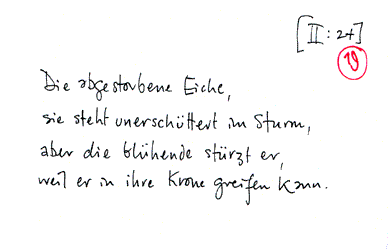 [II: 24]
19
Die abgestorbene Eiche,
sie steht unerschüttert im Sturm,
aber die blühende stürzt er,
weil er in ihre Krone greifen kann.